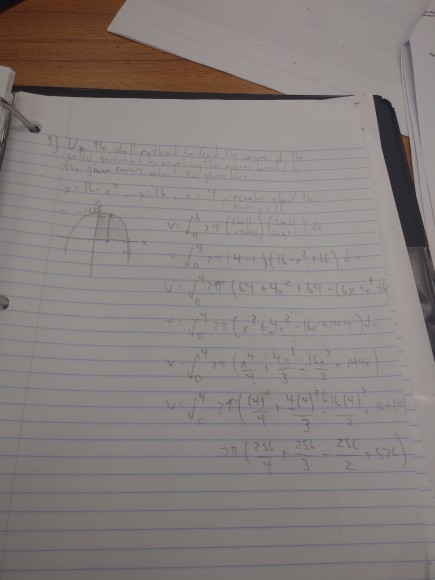 9) Use the shell method to find the volume of the
solid generated by revolving the region bounded by
the given curves about the given line.
y = 16 - x², y = 16, x = 4; revolve about the
line
V = ∫ 2π (shell radius)(shell height) dx
V = ∫₀⁴ 2π (4-x)(16-x²+16) dx
V = ∫₀⁴ 2π (64 + 4x² + 64 - 16x
V = ∫₀⁴ 2π (x³ + 4x² - 16x + 144) dx
V = ∫₀⁴ 2π (x⁴/4 + 4x³/3 - 16x²/2 + 144x)
V = ∫₀⁴ 2π ((4)⁴/4 + 4(4)³/3 - 16(4)²/2 + 144(4)
2π (256/4 + 256/3 - 256/2 + 576)